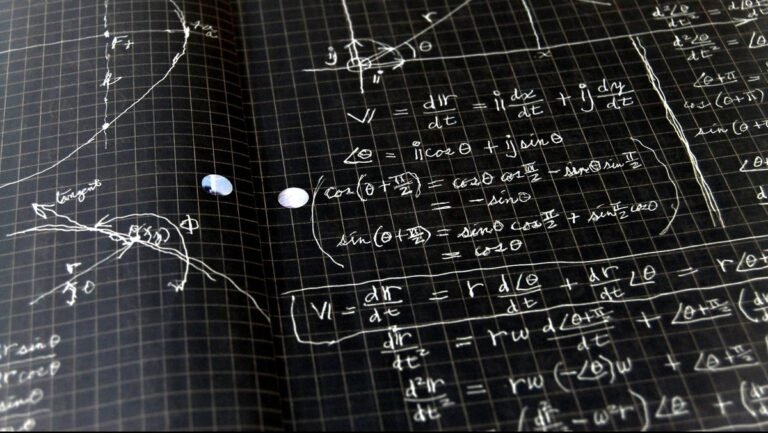 F₁
tangent
Φ
(x,y)
r
θ
r sinθ
r cosθ
sinθ
θ
r
θ
ij
ii
x
V = d𝕣/dt = ii dx/dt + ij dy/dt
∠θ = ii cosθ + ij sinθ
cos(θ + π/2) = cosθ cos π/2 - sinθ sin π/2
= - sinθ
sin(θ + π/2) = sinθ cos π/2 + sin π/2 cosθ
= cosθ
V = d𝕣/dt = r d∠θ/dt + dr/dt ∠θ = r∠θ+
d²𝕣/dt² = rw d∠θ+π/2 /dt + ∠θ+π/2 (d
d²𝕣/dt² = rw (-∠θ)w + ∠θ+π/2
= (d²r/dt² - ω²r) ∠θ + (d
d²∠θ/dt²
d²∠θ/dt² = ∠θ
∠θ+π =
cos(θ+π)
sin(θ+
∠θ+
d∠θ
dt